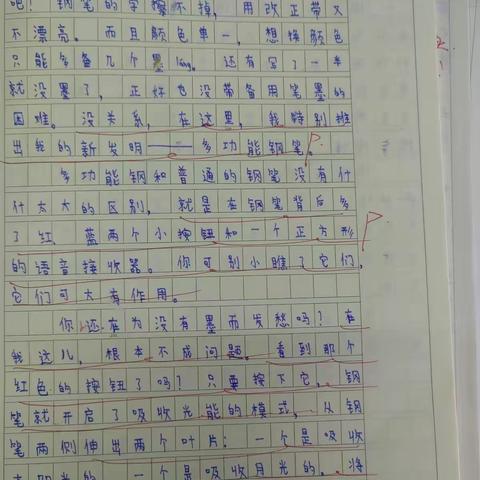 吧！钢笔的字擦不掉，用改正带又
不漂亮。而且颜色单一，想换颜色
只能多备几个墨lang。还有写了一半
就没墨了，正好也没带备用笔墨的
困难。没关系，在这里，我特别推
出我的新发明——多功能钢笔。
多功能钢和普通的钢笔没有什
什太大的区别，就是在钢笔背后多
了红、蓝两个小按钮和一个正方形
的语音接收器。你可别小瞧了它们，
它们可大有作用。
你还在为没有墨而发愁吗？在
我这儿，根本不成问题。看到那个
红色的按钮了吗？只要按下它，钢
笔就开启了吸收光能的模式，从钢
笔两侧伸出两个叶片：一个是吸收
太阳光的，一个是吸收月光的。将